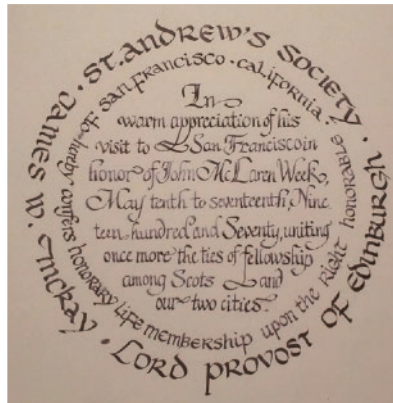 St. Andrew's Society ·
of San Francisco · California ·
hereby confers honorary life membership upon the Right honorable
Lord Provost of Edinburgh ·
James W. McKay ·
In
warm appreciation of his
visit to San Francisco in
honor of John McLaren Week,
May tenth to seventeenth, Nine
teen hundred and Seventy, uniting
once more the ties of fellowship
among Scots and
our two cities.